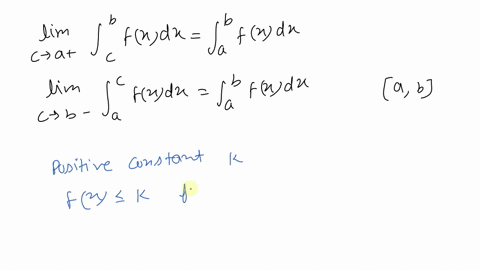 lim c→a+ ∫_c^b f(x)dx = ∫_a^b f(x)dx
lim c→b- ∫_a^c f(x)dx = ∫_a^b f(x)dx [a, b]
Positive constant K
f(x) ≤ K f